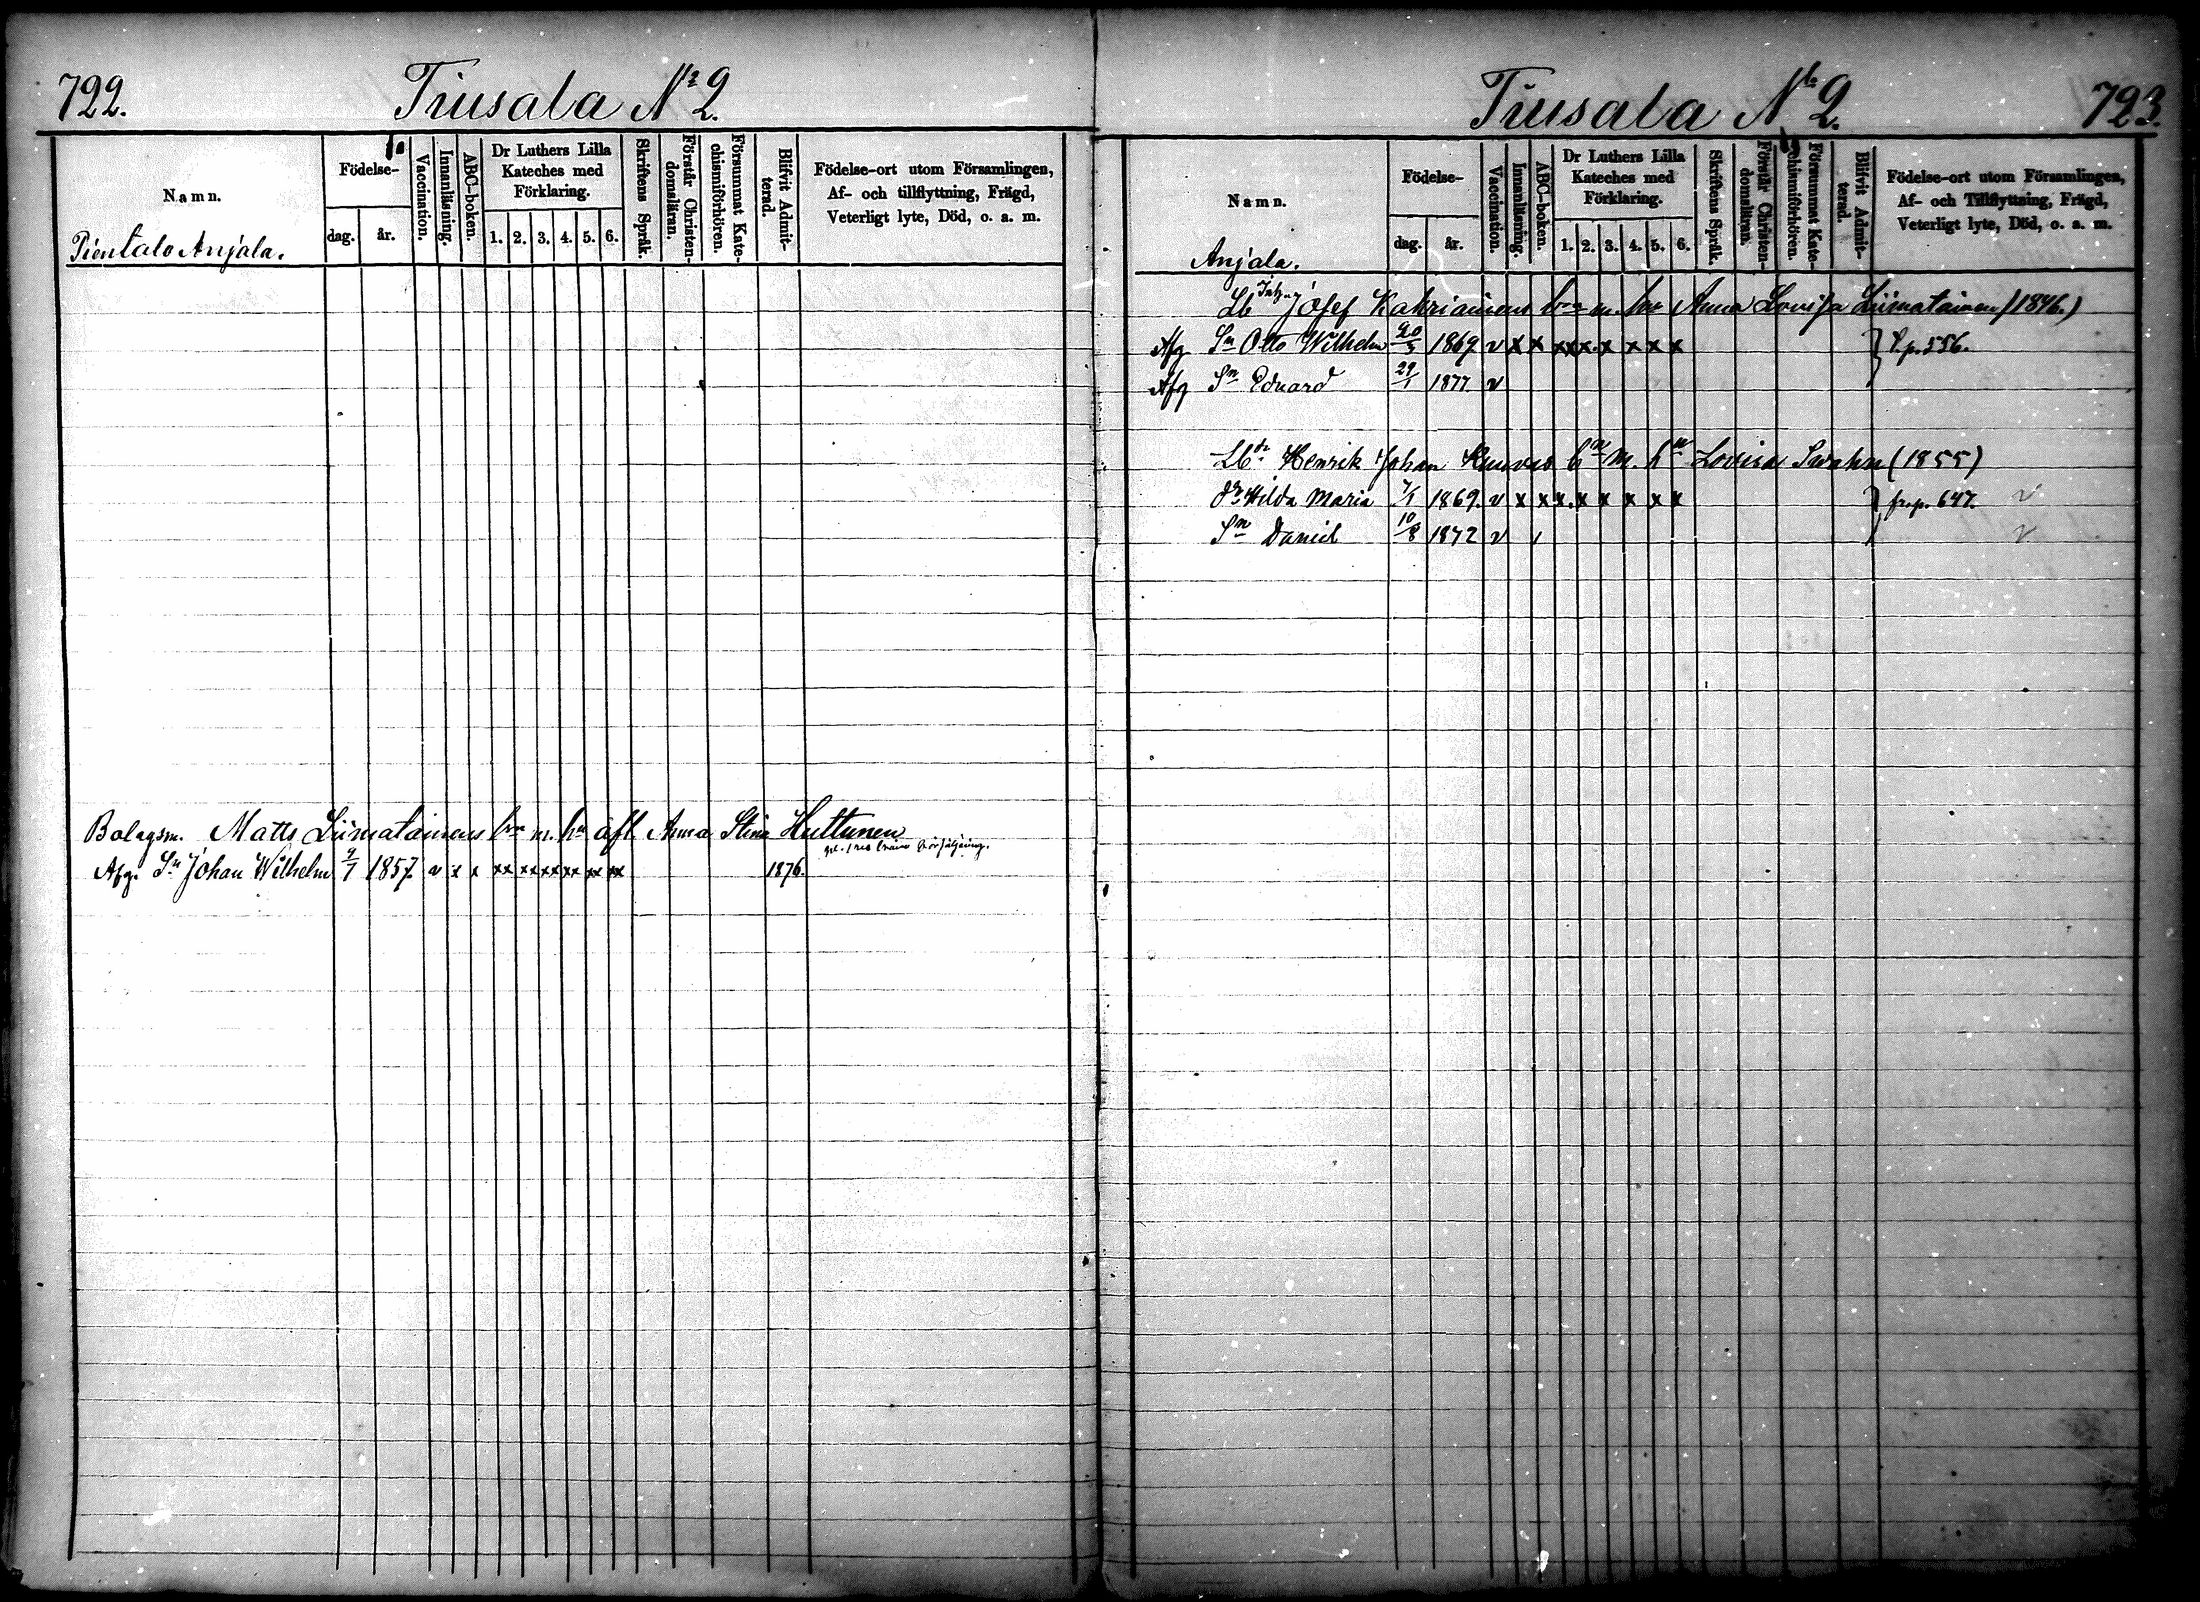 722.
Tiusala No 2.
Namn.
Födelse-
dag.
år.
Vaccination.
Innanläsning.
ABC-boken.
Dr Luthers Lilla
Kateches med
Förklaring.
1. 2. 3. 4. 5. 6.
Skriftens Språk.
Förstår Christen-
domsläran.
Försummat Kate-
chismiförhören.
Blifvit Admit-
terad.
Födelse-ort utom Församlingen,
Af- och tillflyttning, Frägd,
Veterligt lyte, Död, o. a. m.
Pientalo Anjala.
Bolagsm. Matts Liimatainens bn m. hn afl Anna Stina Huttunen
Afg. Sn Johan Wilhelm 9/7 1857. v x x xx xx xx xx xx xx 1876.
Tiusala No 2.
723.
Namn.
Födelse-
dag.
år.
Vaccination.
Innanläsning.
ABC-boken.
Dr Luthers Lilla
Kateches med
Förklaring.
1. 2. 3. 4. 5. 6.
Skriftens Språk.
Förstår Christen-
domsläran.
Försummat Kate-
chismiförhören.
Blifvit Admit-
terad.
Födelse-ort utom Församlingen,
Af- och Tillflyttning, Frägd,
Veterligt lyte, Död, o. a. m.
Anjala.
Lb Josef Kahriainens bn m. hn Anna Lovisa Liimatainen (1846.)
Afg Sn Otto Wilhelm 20/3 1869 v x x xx x. x x x x p. 556.
Afg Sn Eduard 29/1 1877 v
Lb Henrik Johan bn m. hn Lovisa Swahn (1855)
dr Hilda Maria 7/1 1869. v x x x. x x x x x fr. p. 647. v
Sn Daniel 10/8 1872 v v